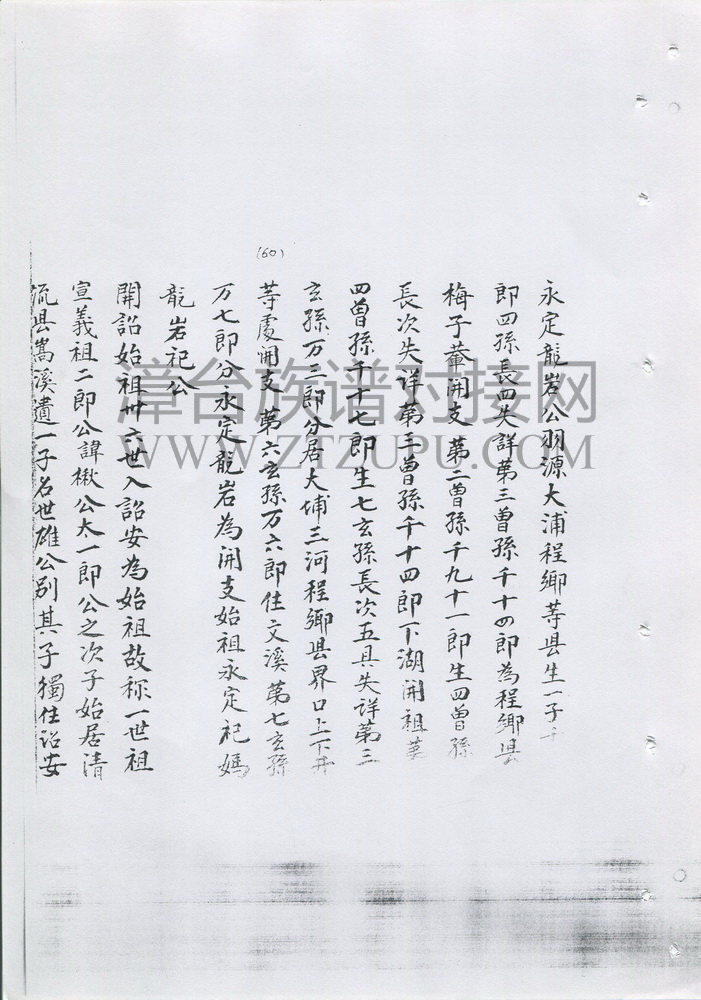 (60)
永定龍岩公羽源大浦程鄉等县生一子千
郎四孫長四失詳第三曾孫千十四郎為程鄉县
梅子輋開支第二曾孫千九十一郎生四曾孫
長次失详第三曾孫千十四郎下湖開祖第
四曾孫千十七郎生七玄孫長次五具失详第三
玄孫万二郎分居大埔三河程鄉县界口上下井
等處開支第六玄孫万六郎住文溪第七玄孫
万七郎分永定龍岩為開支始祖永定祀媽
龍岩祀公
開詔始祖卅六世入詔安為始祖故称一世祖
宣義祖二郎公諱楸公太一郎公之次子始居清
流县嵩溪遺一子名世雄公别其子獨住詔安
漳台族谱对接网
WWW.ZTZUPU.COM